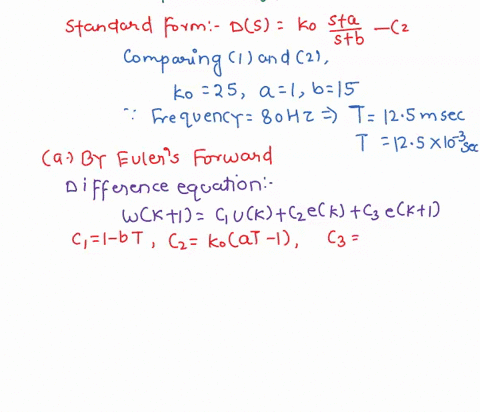 Standard Form:- D(s) = ko s+a/s+b —(2
Comparing (1) and (2),
ko = 25, a=1, b=15
∵ Frequency = 80Hz => T = 12.5 msec
T = 12.5×10^-3 sec
(a.) By Euler's Forward
Difference equation:-
w(k+1) = C1 u(k) + C2 e(k) + C3 e(k+1)
C1 = 1-bT, C2 = ko(aT-1), C3 =